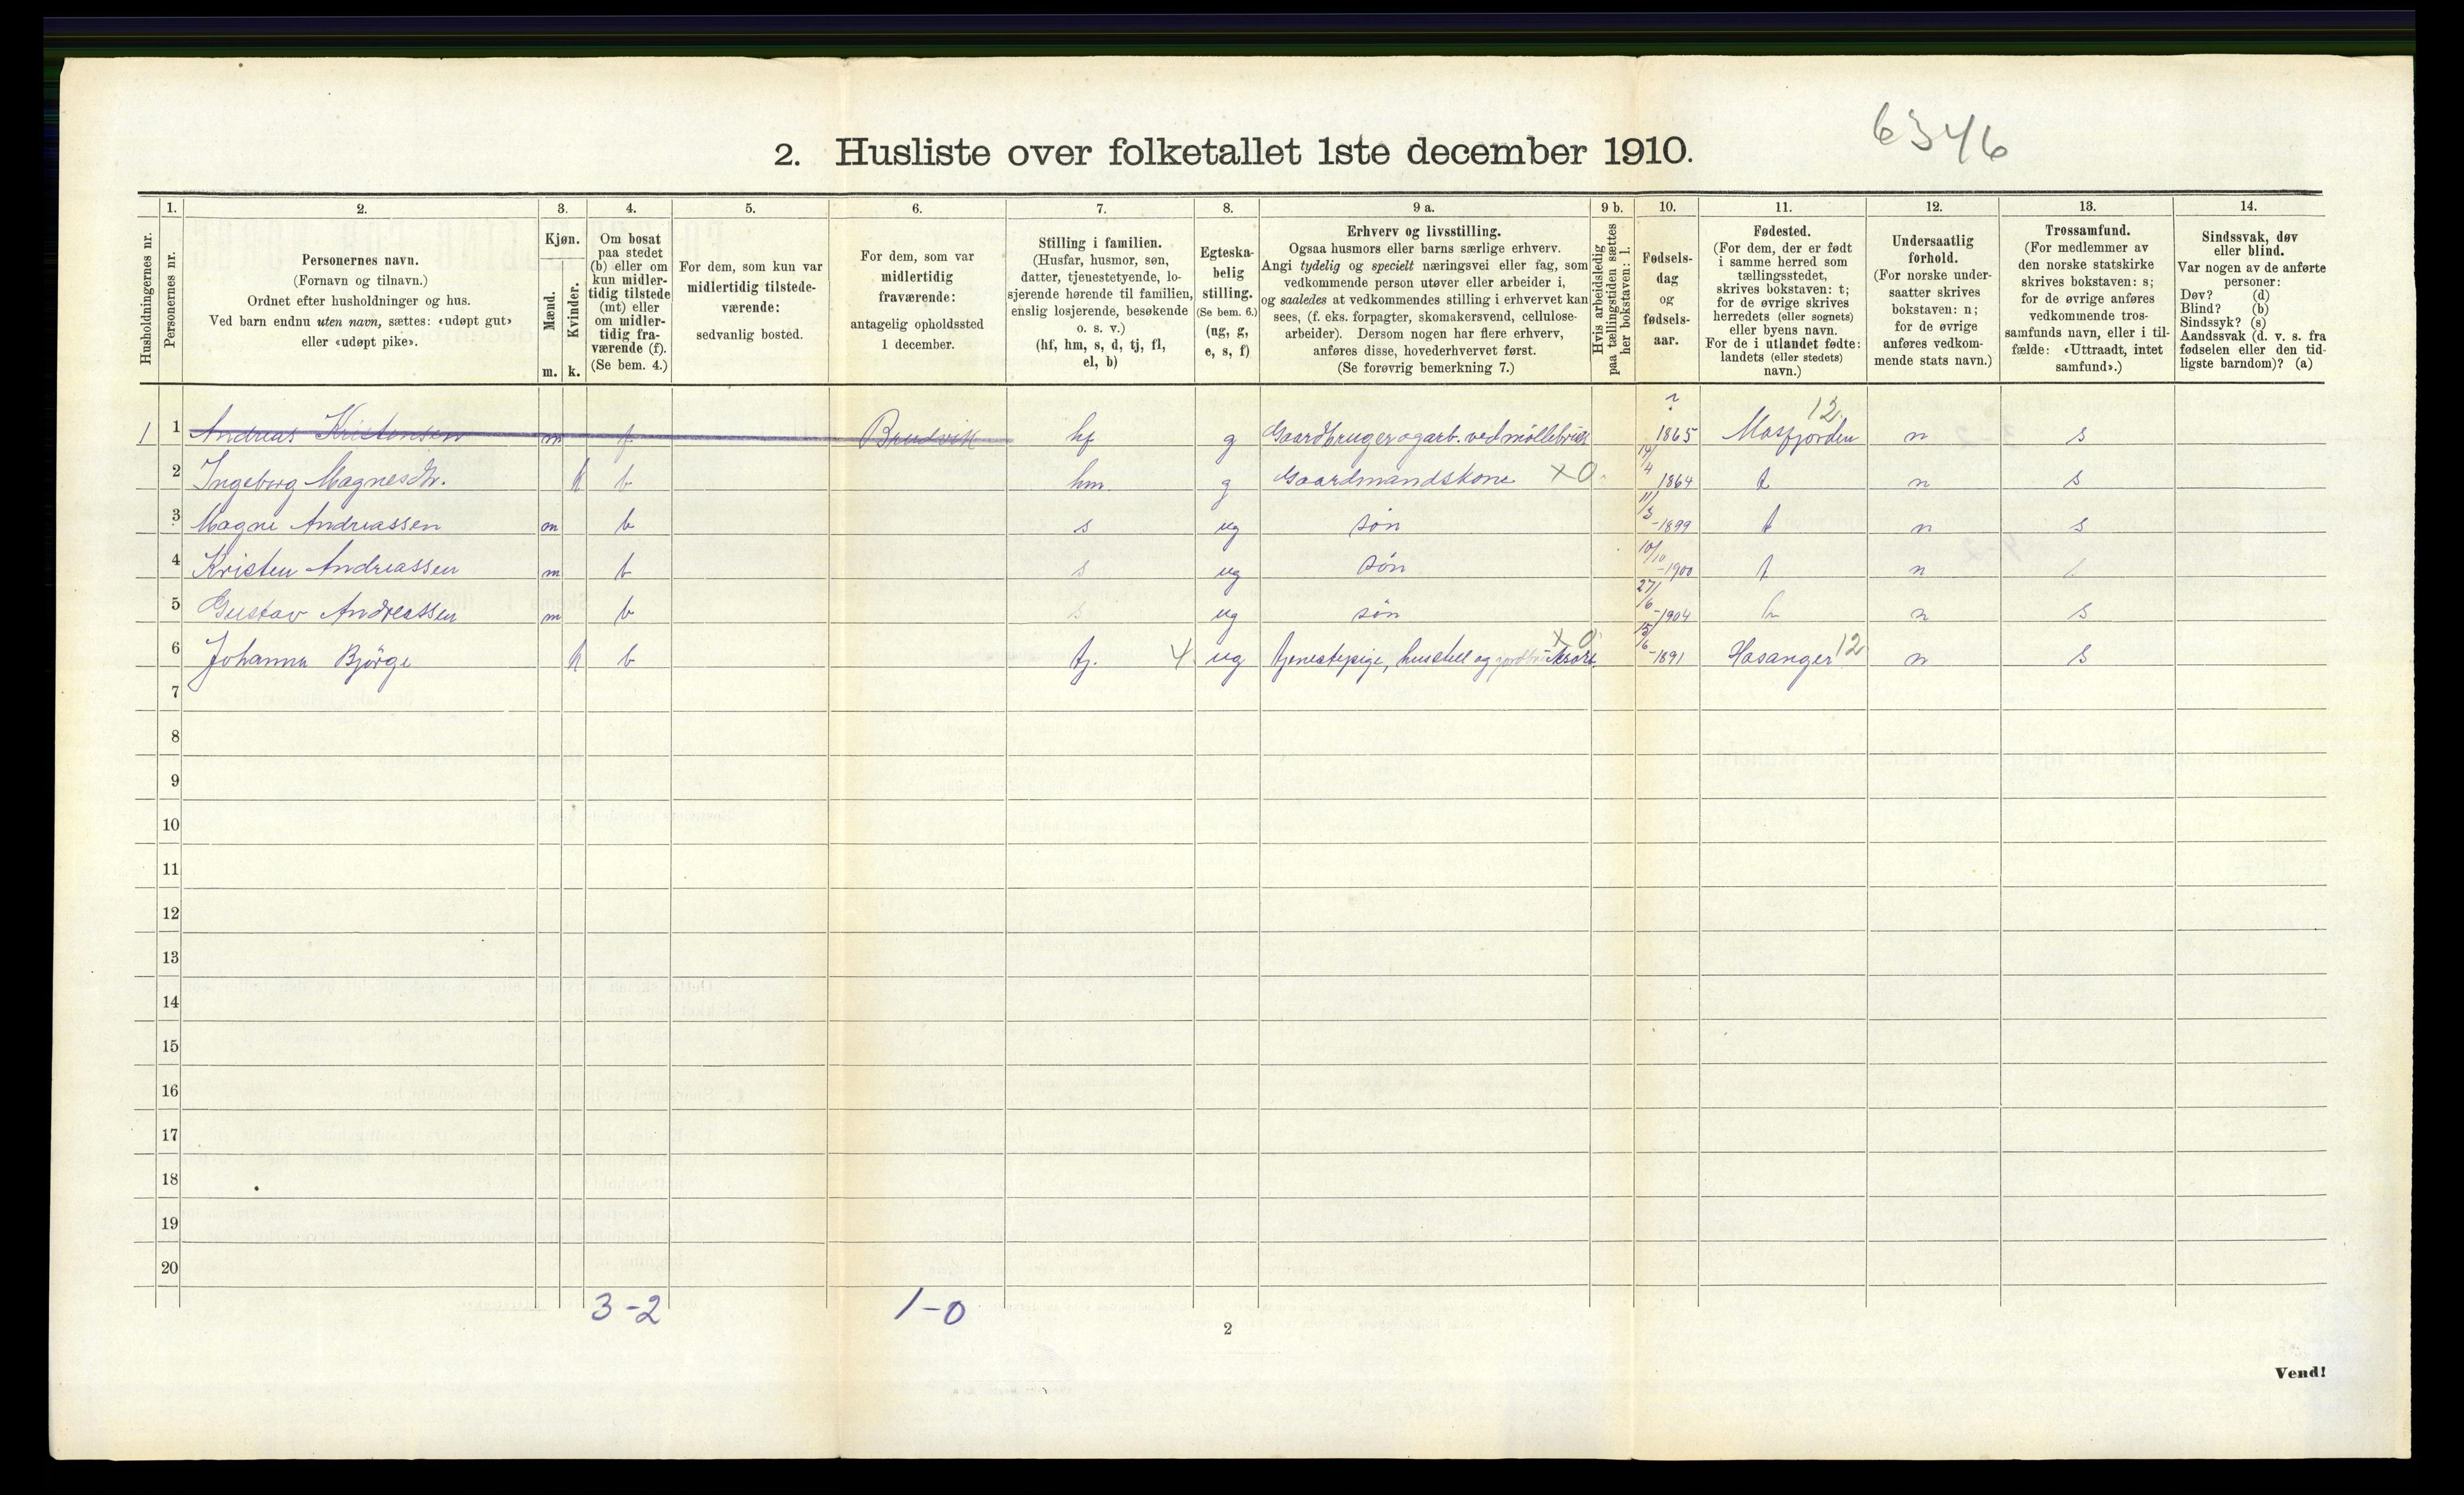 6346
2. Husliste over folketallet 1ste december 1910.
1. 2. 3. 4. 5. 6. 7. 8. 9 a. 9 b. 10. 11. 12. 13. 14.
Husholdningernes nr.
Personernes nr.
Personernes navn.
(Fornavn og tilnavn.)
Ordnet efter husholdninger og hus.
Ved barn endnu uten navn, sættes: «udøpt gut»
eller «udøpt pike».
Kjøn.
Mænd.
Kvinder.
m. k.
Om bosat
paa stedet
(b) eller om
kun midler-
tidig tilstede
(mt) eller
om midler-
tidig fra-
værende (f).
(Se bem. 4.)
For dem, som kun var
midlertidig tilstede-
værende:
sedvanlig bosted.
For dem, som var
midlertidig
fraværende:
antagelig opholdssted
1 december.
Stilling i familien.
(Husfar, husmor, søn,
datter, tjenestetyende, lo-
sjerende hørende til familien,
enslig losjerende, besøkende
o. s. v.)
(hf, hm, s, d, tj, fl,
el, b)
Egteska-
belig
stilling.
(Se bem. 6.)
(ug, g,
e, s, f)
Erhverv og livsstilling.
Ogsaa husmors eller barns særlige erhverv.
Angi tydelig og specielt næringsvei eller fag, som
vedkommende person utøver eller arbeider i,
og saaledes at vedkommendes stilling i erhvervet kan
sees, (f. eks. forpagter, skomakersvend, cellulose-
arbeider). Dersom nogen har flere erhverv,
anføres disse, hovederhvervet først.
(Se forøvrig bemerkning 7.)
Hvis arbeidsledig
paa tællingstiden sættes
her bokstaven: l.
Fødsels-
dag
og
fødsels-
aar.
Fødested.
(For dem, der er født
i samme herred som
tællingsstedet,
skrives bokstaven: t;
for de øvrige skrives
herredets (eller sognets)
eller byens navn.
For de i utlandet fødte:
landets (eller stedets)
navn.)
Undersaatlig
forhold.
(For norske under-
saatter skrives
bokstaven: n;
for de øvrige
anføres vedkom-
mende stats navn.)
Trossamfund.
(For medlemmer av
den norske statskirke
skrives bokstaven: s;
for de øvrige anføres
vedkommende tros-
samfunds navn, eller i til-
fælde: «Uttraadt, intet
samfund».)
Sindssvak, døv
eller blind.
Var nogen av de anførte
personer:
Døv? (d)
Blind? (b)
Sindssyk? (s)
Aandssvak (d. v. s. fra
fødselen eller den tid-
ligste barndom)? (a)
1 1 Andreas Kristensen m f Brudvik hf g Gaardbruger og arb. ved möllebruk ? 1865 Masfjorden 12 n s
2 Ingeborg Magnesdtr. k b hm g Gaardmandskone x0 14/4 1864 t n s
3 Magne Andreassen m b s ug søn 11/3 -1899 t n s
4 Kristen Andreassen m b s ug søn 10/10 -1900 t n
5 Gustav Andreassen m b s ug søn 27/6 -1904 n s
6 Johanna Björge k b tj. 4 ug tjenestepige, husstel og x0 15/6 -1891 Hosanger 12 n s
7
8
9
10
11
12
13
14
15
16
17
18
19
20
3-2 1-0
2
Vend!